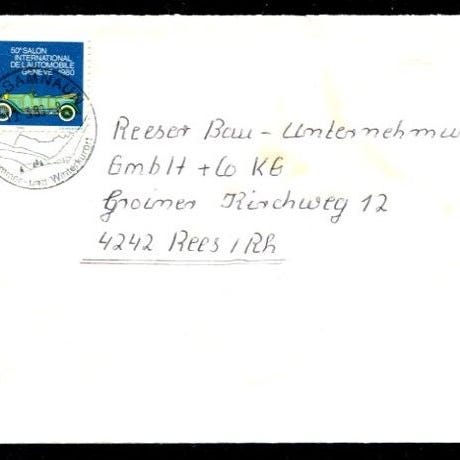 50e SALON
INTERNATIONAL
DE L'AUTOMOBILE
GENÈVE 1980
SAMNAUN
und Winterkurort
Reeser Bau - Unternehmu
GmbH + Co KG
Groiner Kirchweg 12
4242 Rees / Rh